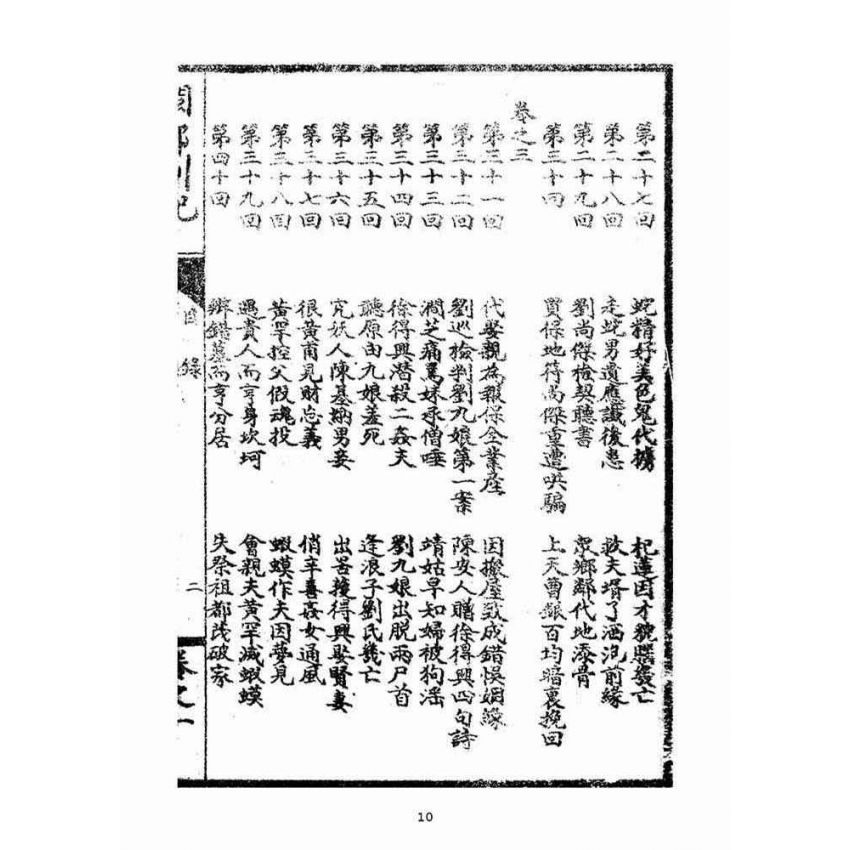 第二十七回 蛇精好美色鬼代擄 杞蓮因才貌幾亡
第二十八回 走蛇男遺應讖後患 救夫壻了洒氾前緣
第二十九回 劉尚傑檢契聽書 眾鄉鄰代地添骨
第三十回 買保地符尚傑重遭哄騙 上天曹銀百均暗裏挽回
卷之三
第三十一回 代娶親為報保全業產 因搬屋致成錯悞姻緣
第三十二回 劉巡檢判劉九娘第一案 陳安人贈徐得興四句詩
第三十三回 澗芝痛罵妹承僧唾 靖姑早知婦被狗滛
第三十四回 徐得興潛殺二姦夫 劉九娘出脫兩尸首
第三十五回 聽原由九娘羞死 逢浪子劉氏幾亡
第三十六回 究妖人陳基納男妾 出罟獲得興娶賢妻
第三十七回 很黃甫見財忘義 俏辛喜姦女通風
第三十八回 黃罕控父假魂投 蝦蟆作夫因夢見
第三十九回 遇貴人而亨身坎坷 會親夫黃罕滅蝦蟆
第四十回 辦錯薦而亨分居 失祭祖都茂破家
閩都別記
目錄
二
卷之一
10